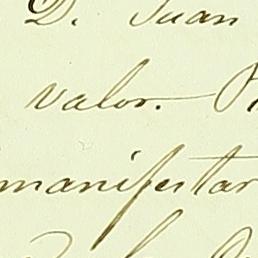 D. Juan
valor.
manifestar